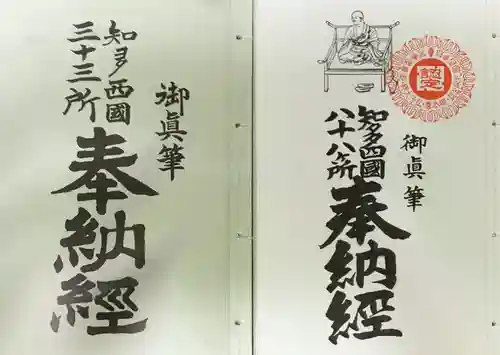 御眞筆
知多四國
八十八ヶ所
奉納經
御眞筆
知多西國
三十三所
奉納經